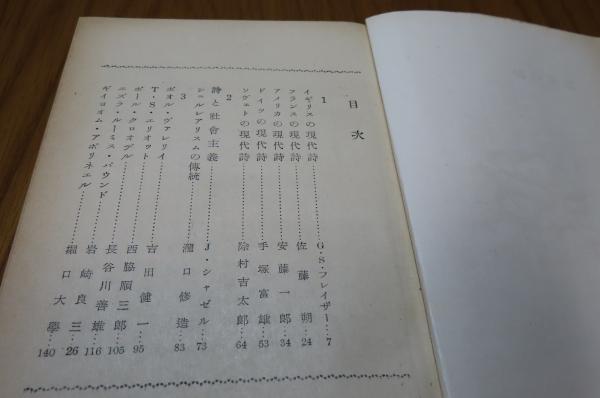 目次
1
イギリスの現代詩………G・S・フレイザー 7
フランスの現代詩………佐藤朔 24
アメリカの現代詩………安藤一郎 34
ドイツの現代詩………手塚富雄 53
ソヴェトの現代詩………除村吉太郎 64
2
詩と社會主義………J・シャゼル 73
シュルレアリスムの傳統………瀧口修造 83
3
ポオル・ヴァレリイ………吉田健一 95
T・S・エリオット………西脇順三郎 105
ポール・クロオデル………長谷川善雄 116
エズラ・ルーミス・パウンド………岩崎良三 26
ギイヨオム・アポリネエル………堀口大學 140